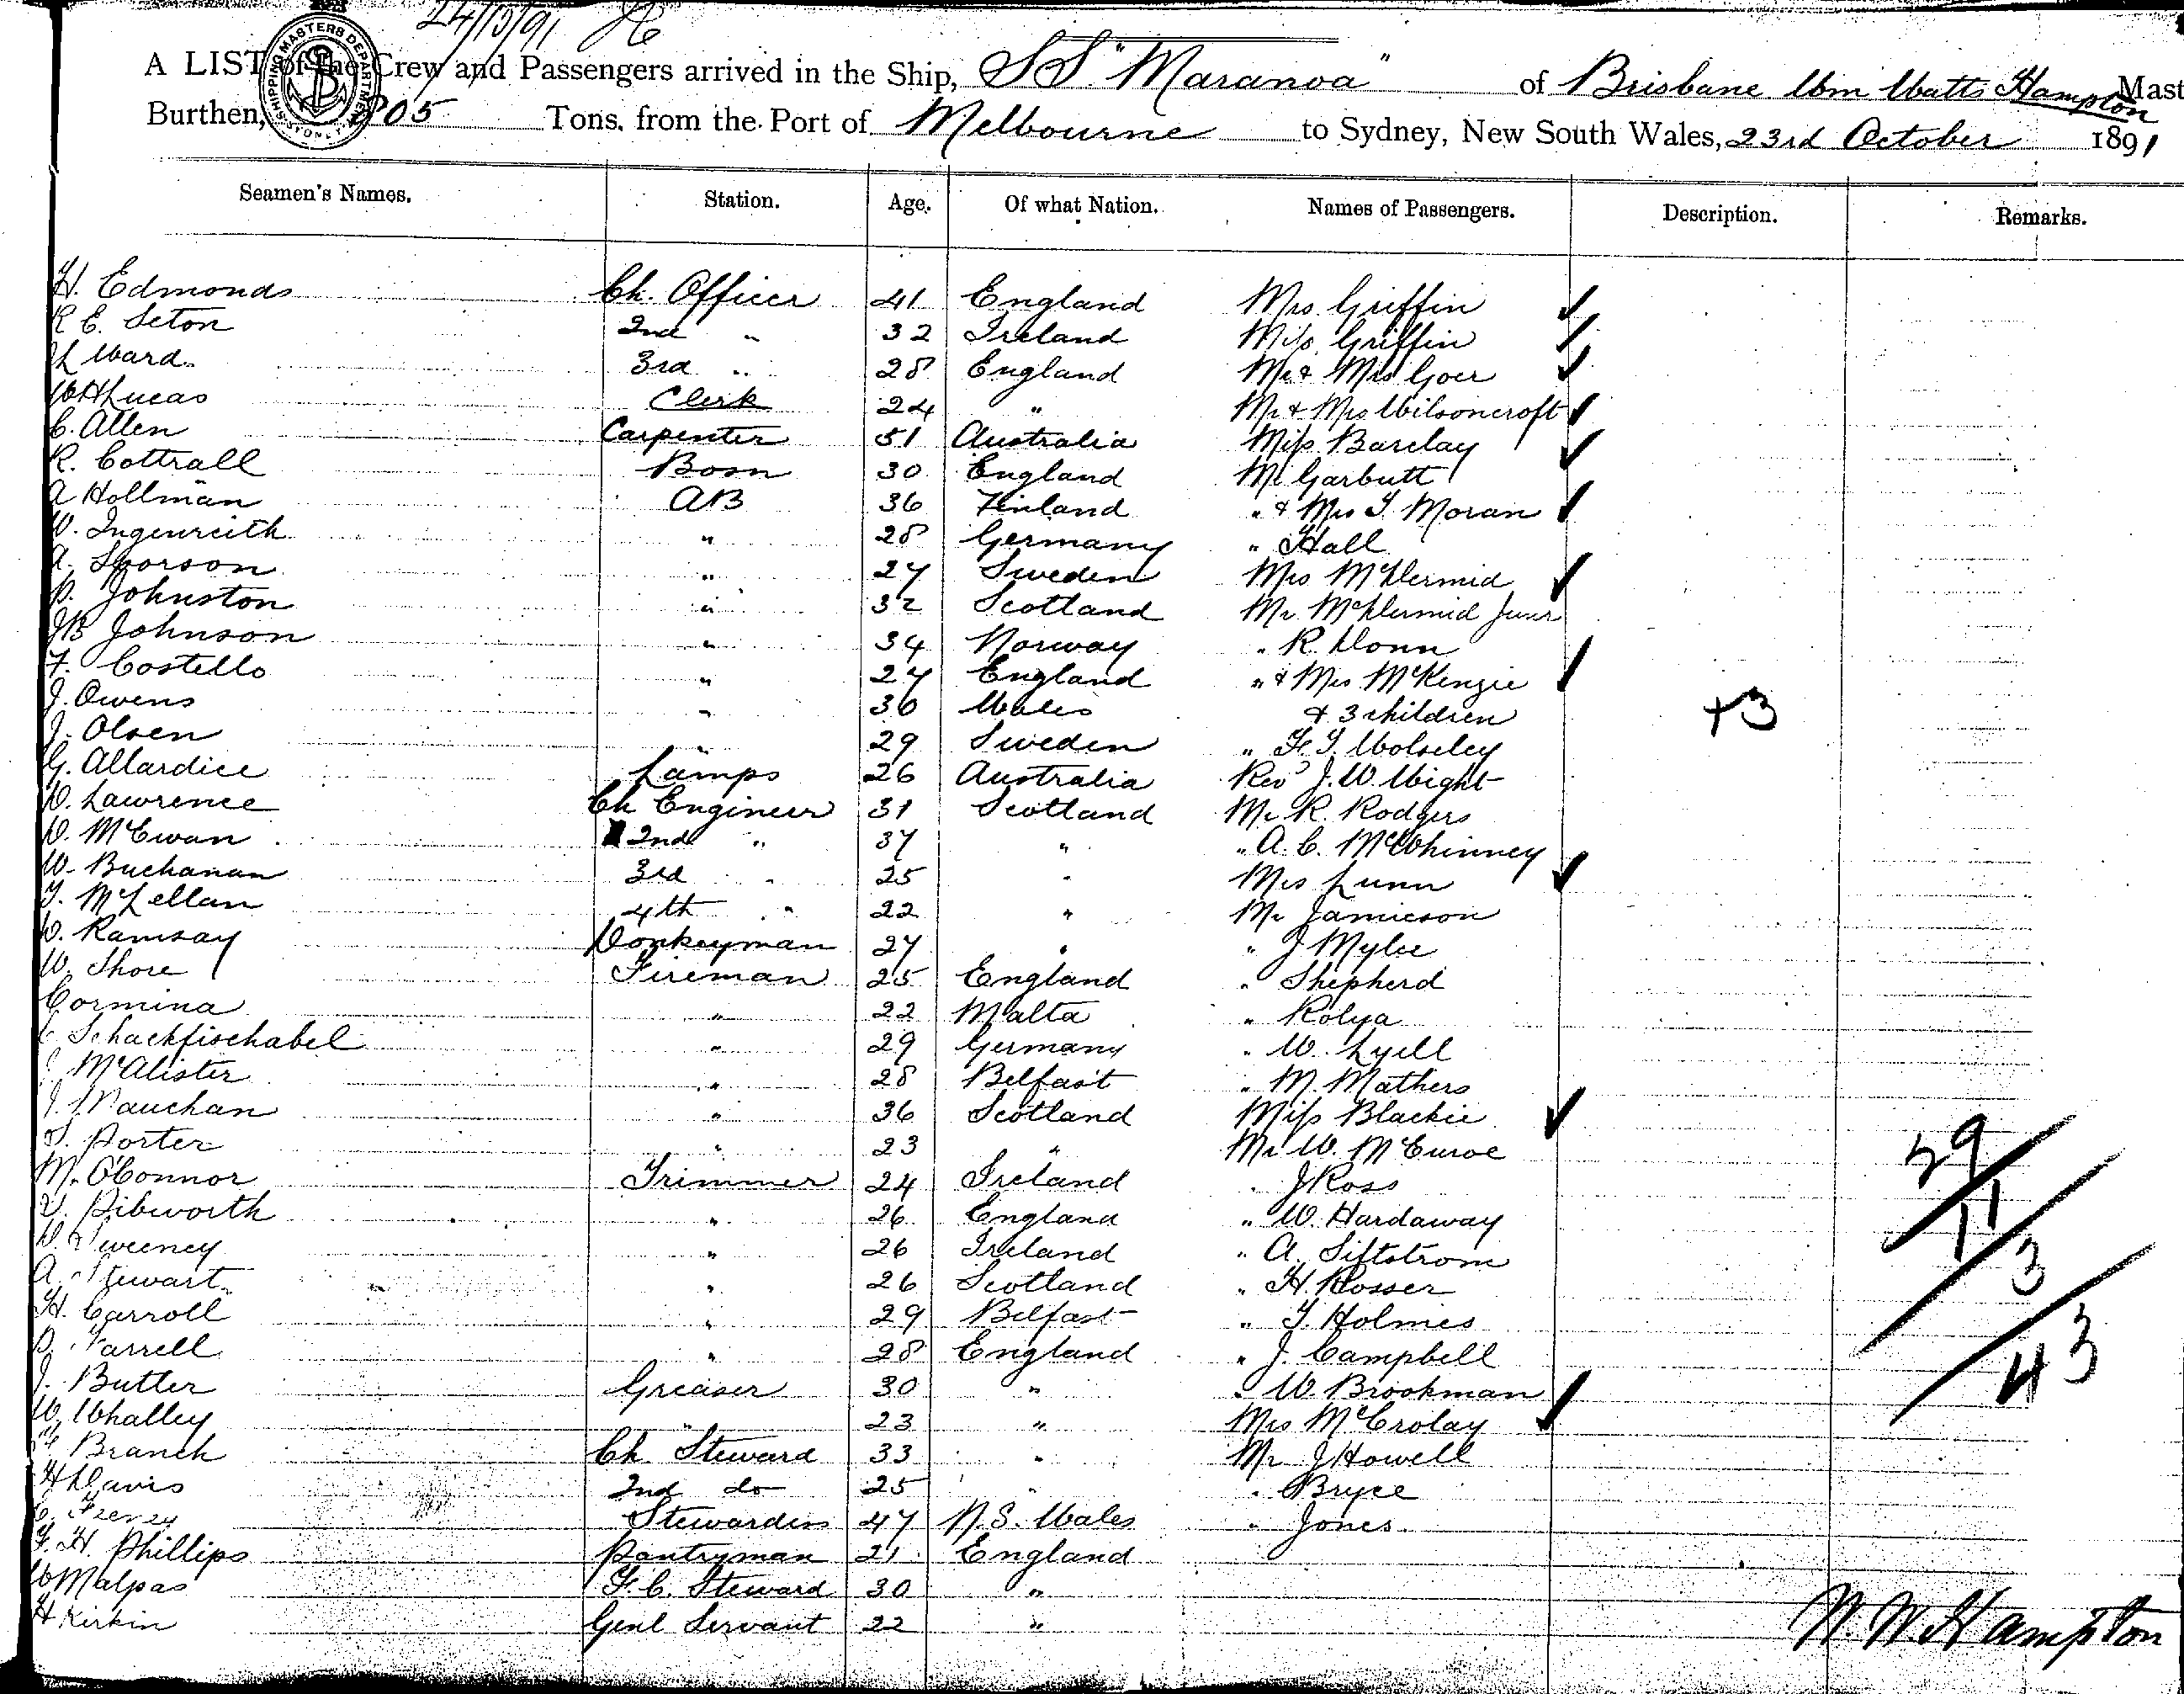 24/10/91
A LIST of the Crew and Passengers arrived in the Ship, SS "Maranoa" of Brisbane Wm Watts Hampton Mast
Burthen, 805 Tons, from the Port of Melbourne to Sydney, New South Wales, 23rd October 1891
SHIPPING MASTERS DEPARTMENT
Seamen's Names. Station. Age. Of what Nation. Names of Passengers. Description. Remarks.
H. Edmonds Ch. Officer 41 England Mrs Griffin ✓
R E. Seton 2nd " 32 Ireland Miss Griffin ✓
Ward 3rd " 28 England Mr & Mrs Goer ✓
WH Lucas Clerk 24 " Mr & Mrs Wilsoncroft ✓
C. Allen Carpenter 51 Australia Miss Barclay ✓
R. Cottrall Bosn 30 England Mr Garbutt
A Hollman AB 36 Finland " & Mrs T. Moran ✓
W. Ingenreith " 28 Germany " Hall
A. Thorson " 27 Sweden Mrs McDermid ✓
P. Johnston " 32 Scotland Mr McDermid Junr
JB Johnson " 34 Norway " R. Donn
F. Costello " 27 England " & Mrs McKenzie ✓
J. Owens " 30 Wales & 3 children +3
J. Olsen " 29 Sweden " F. T. Wolseley
G. Allardice Lamps 26 Australia Rev J. W. Wight
D. Lawrence Ch Engineer 31 Scotland Mr R. Rodgers
D. McEwan 2nd " 37 " " A. C. McWhinney
W. Buchanan 3rd " 25 " Mrs Lunn ✓
T. McLellan 4th " 22 " Mr Jamieson
D. Ramsay Donkeyman 27 " " J Mylee
W. Shore Fireman 25 England " Shepherd
Cormina " 22 Malta " Rolya
Schackfischabel " 29 Germany " W. Lyell
McAlister " 28 Belfast " M. Mathers
J. Mauchan " 36 Scotland Miss Blackie ✓
S. Porter " 23 " Mr W. McEuroe
M. O'Connor Trimmer 24 Ireland " J Ross
Pibworth " 26 England " W. Hardaway
D. Sweeney " 26 Ireland " A. Siftstrom
A. Stewart " 26 Scotland " H. Rosser
H. Carroll " 29 Belfast " T. Holmes
P. Farrell " 28 England " J. Campbell
J. Butler Greaser 30 " " W. Brookman
W. Whalley " 23 " Mrs McCrolay ✓
Branch Ch. Steward 33 " Mr J Howell
H Davis 2nd do 25 " " Bryce
Stewardess 47 N. S. Wales " Jones
F. H. Phillips Pantryman 21 England
W Malpas F. C. Steward 30 "
H Kirkin Genl Servant 22 "
29
11
3
43
W. W. Hampton